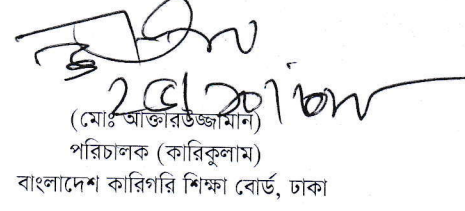 (মোঃ আক্তারউজ্জামান)
পরিচালক (কারিকুলাম)
বাংলাদেশ কারিগরি শিক্ষা বোর্ড, ঢাকা